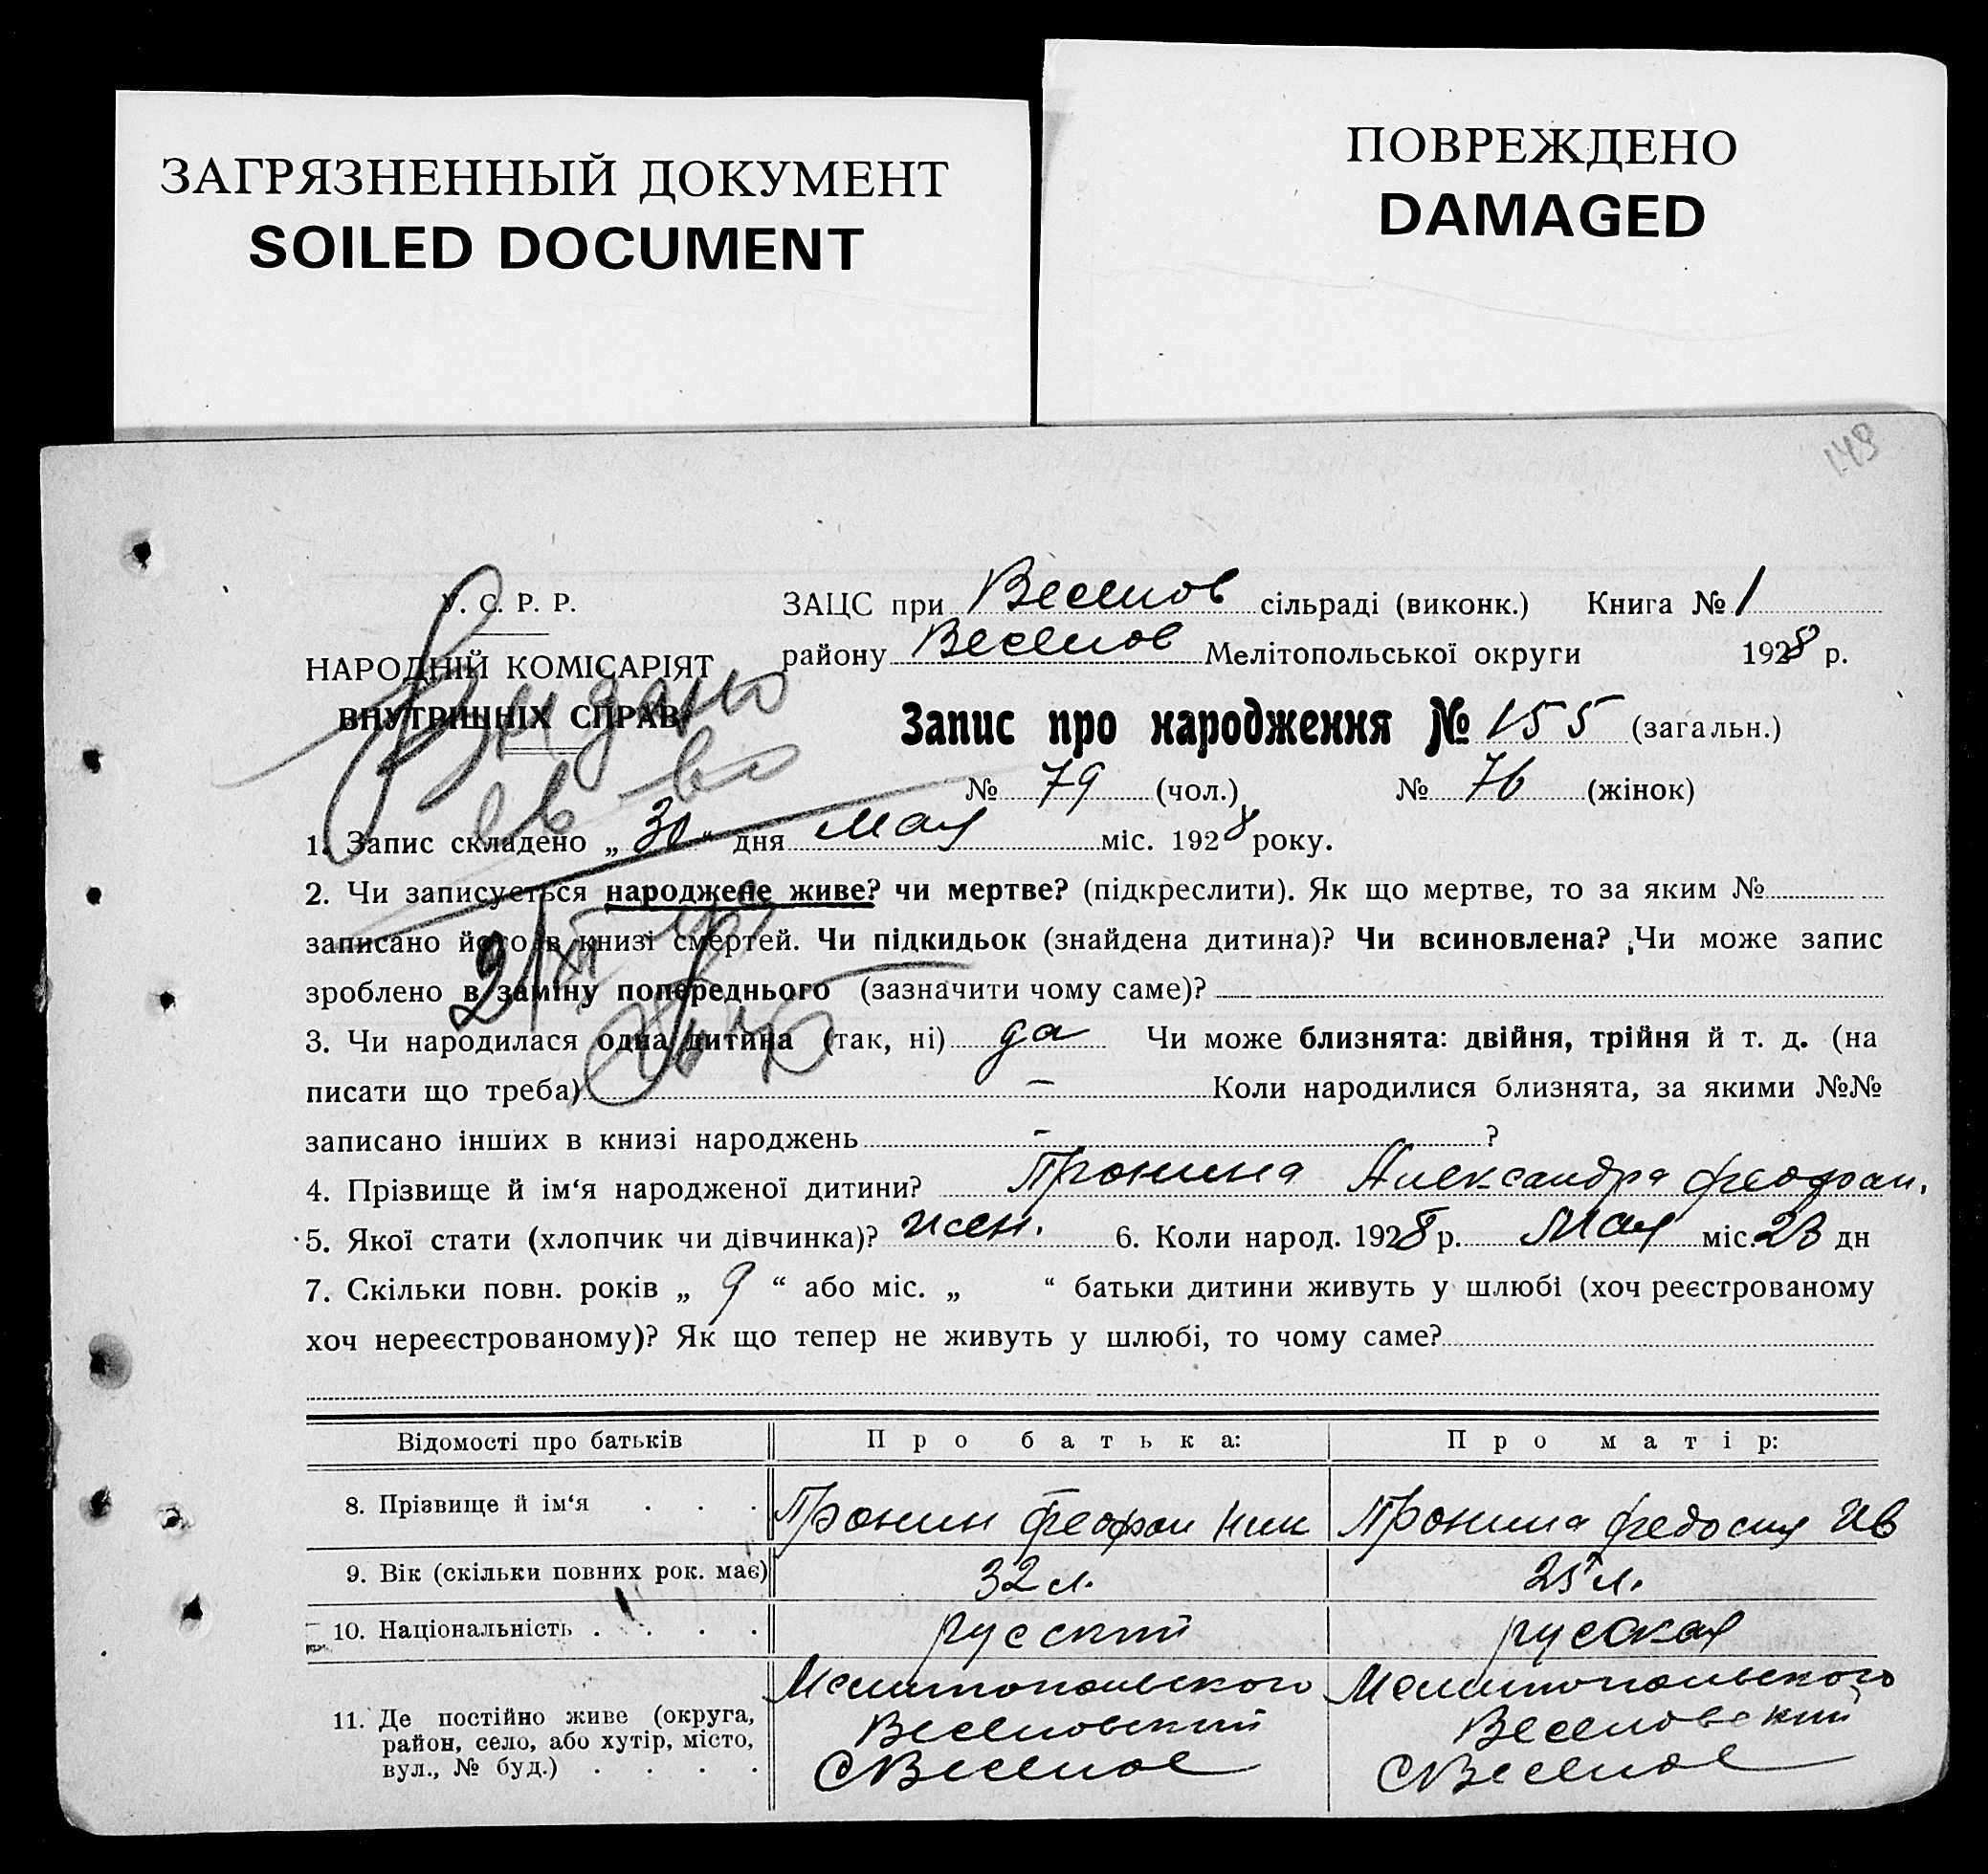 ЗАГРЯЗНЕННЫЙ ДОКУМЕНТ
SOILED DOCUMENT
ПОВРЕЖДЕНО
DAMAGED
149
У. С. Р. Р.
НАРОДНІЙ КОМІСАРІЯТ
ВНУТРІШНІХ СПРАВ
Видано
св-во
ЗАЦС при Веселов сільраді (виконк.) Книга № 1
району Веселов Мелітопольської округи 1928 р.
Запис про народження № 155 (загальн.)
№ 79 (чол.) № 76 (жінок)
1. Запис складено „ 30 “ дня мая міс. 1928 року.
2. Чи записується народжене живе? чи мертве? (підкреслити). Як що мертве, то за яким №
записано його в книзі смертей. Чи підкидьок (знайдена дитина)? Чи всиновлена? Чи може запис
зроблено в заміну попереднього (зазначити чому саме)?
21/XI
3. Чи народилася одна дитина (так, ні) да Чи може близнята: двійня, трійня й т. д. (на
писати що треба) – Коли народилися близнята, за якими №№
записано інших в книзі народжень – ?
4. Прізвище й ім‘я народженої дитини? Пронина Александра Феофан.
5. Якої стати (хлопчик чи дівчинка)? жен. 6. Коли народ. 1928 р. Мая міс. 23 дн
7. Скільки повн. років „ 9 “ або міс. „ “ батьки дитини живуть у шлюбі (хоч реєстрованому
хоч нереєстрованому)? Як що тепер не живуть у шлюбі, то чому саме?
Відомості про батьків Про батька: Про матір:
8. Прізвище й ім‘я . . . Пронин Феофан Ник Пронина Федосия Ив
9. Вік (скільки повних рок. має) 32 л. 25 л.
10. Національність . . . . русский русская
11. Де постійно живе (округа, район, село, або хутір, місто, вул., № буд.) . . . .
Мелитопольского Мелитопольского
Веселовский Веселовский
С Веселое С Веселое